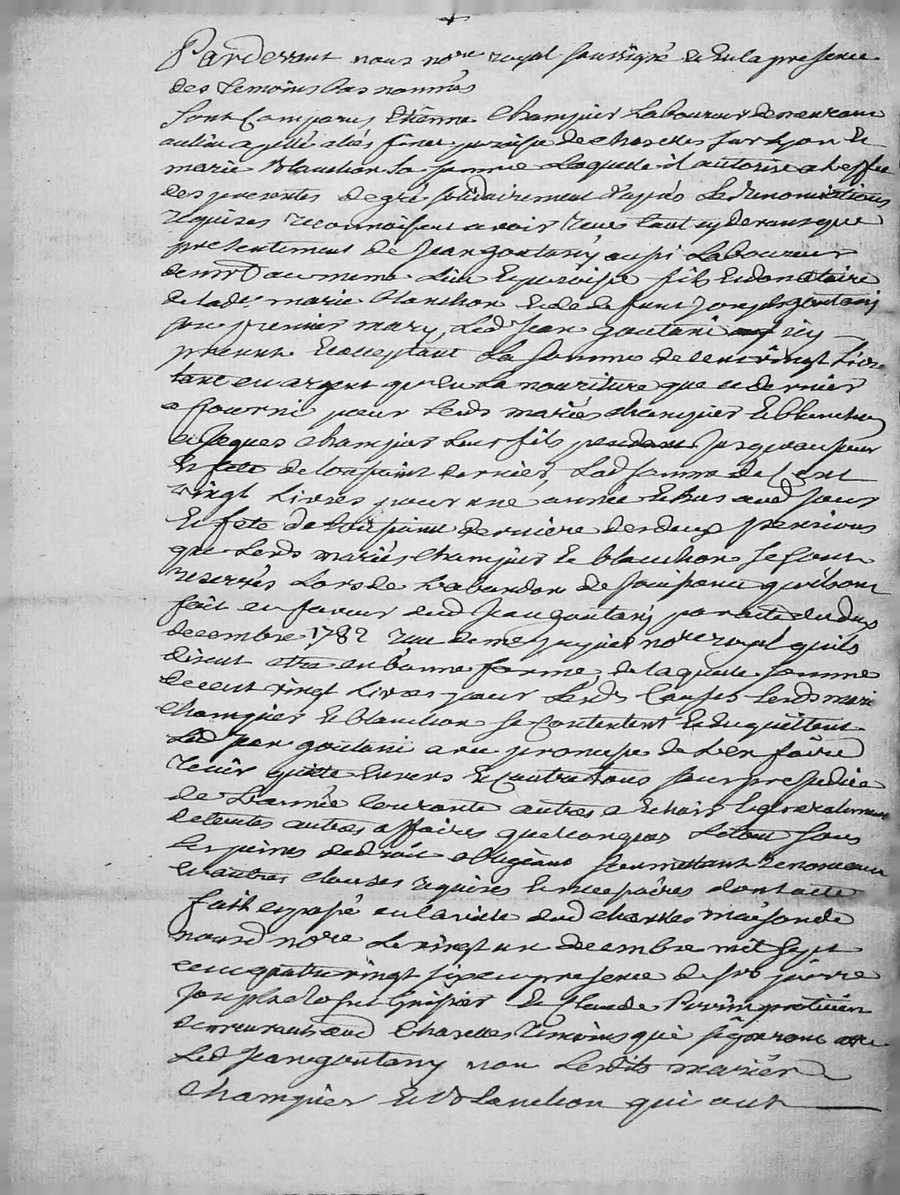 Pardevant nous no.re royal soussigné et en la presence
des temoins bas nommés
Sont Comparus Etienne Champier Laboureur demeurant
au lieu appellé paroisse de charelles sur Lyon et
marie Blanchon sa femme Laquelle il autorise a Leffet
des presentes de gré solidairement Les Renonciations
requises reconnoissent avoir receu tant cy devant que
presentement de Jean goutany aussi Laboureur
demt au meme Lieu et paroisse fils et donataire
de lade marie Blanchon et de defunt Joseph goutany
son premier mary, Led Jean goutani icy
present et acceptant La somme de cent vingt Livres
tant en argent qu'en La nouriture que ce dernier
a fourni pour Lesds mariés champier et blanchon
et Jaques champier leur fils jusqueau jour
et fete de toussaint dernier, Lad somme de Cent
vingt Livres pour une année echue aud Jour
et fete de toussaint derniere des deux pensions
que Lesds mariés champier et blanchon se sont
reservés Lors de Labandon de qu'ils ont
fait en faveur dud Jean goutani par acte du deux
decembre 1782 receu de no.re royal quils
disent etre en bonne forme, de laquelle somme
de cent vingt Livres pour Lesds Causes Lesds mariés
champier et blanchon se Contentent et en quittent
Led Jean goutani avec promesse de L'en faire
tenir quitte Envers et Contre tous sans prejudice
de L'année Courante autres a Echoir et generalement
de toutes autres affaires quelconques Le tout sous
Les peines de droit obligeant soumettant Renonceant
et autres clauses requises et necessaires dont acte
fait et passé en la ville dud maison de
nousd no.re Le vingt un decembre mil sept
cent quatre vingt six en presence de srs pierre
Joseph greffier et Claude Perrin praticien
demeurants aud temoins qui signeront avec
Led Jean goutany non Lesdits mariés
Champier et Blanchon qui ont